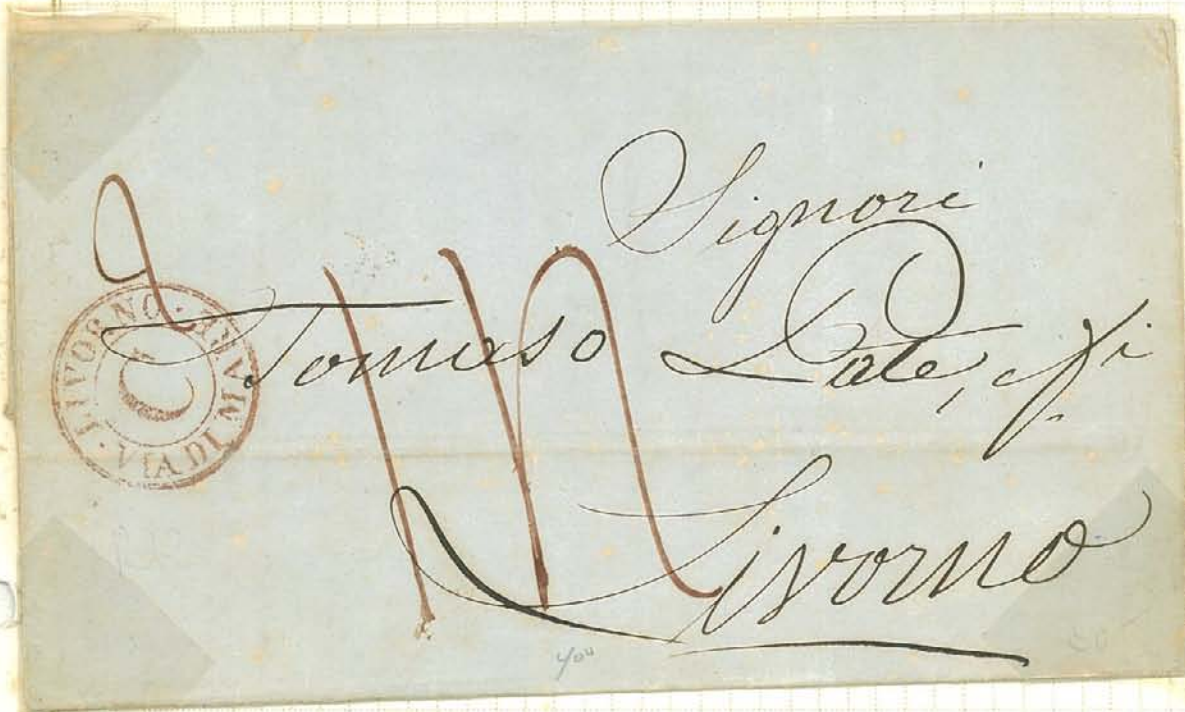 Signori
Tomaso Pate, fi
Livorno
LIVORNO
VIA DI MARE
C